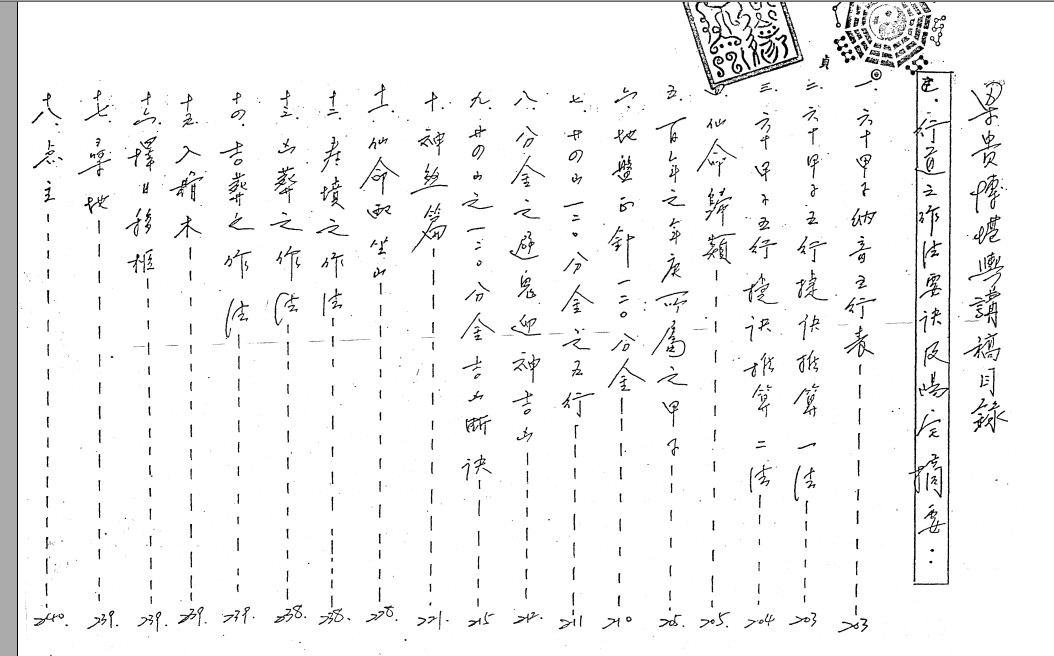 果貴博堪輿講稿目錄
行道之作法要訣及陽宅摘要：
一、六十甲子納音五行表 203
二、六十甲子五行捷訣推算一法 203
三、六十甲子五行捷訣推算二法 204
四、仙命歸類 205.
五、百年之年庚所屬之甲子 205.
六、地盤正針一二〇分金 210
七、廿四山一二〇分金之五行 211
八、分金之避鬼迎神吉凶 212.
九、廿四山之一二〇分金吉凶斷訣 215
十、神煞篇 221.
十一、仙命配坐山 228.
十二、造墳之作法 238.
十三、凶葬之作法 238.
十四、吉葬之作法 239.
十五、入壽木 239.
十六、擇日移柩 239.
十七、尋地 239.
十八、点主 240.
貞